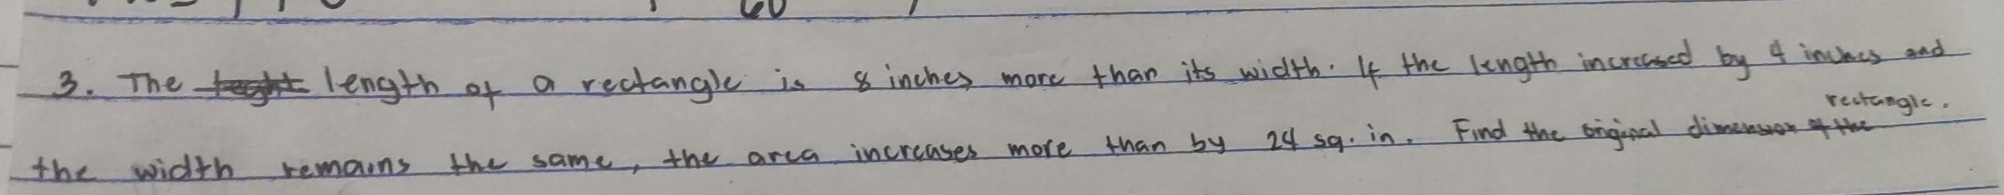 60
3. The length of a rectangle is 8 inches more than its width. If the length increased by 4 inches and
the width remains the same, the area increases more than by 24 sq. in. Find the original dimension of the rectangle.